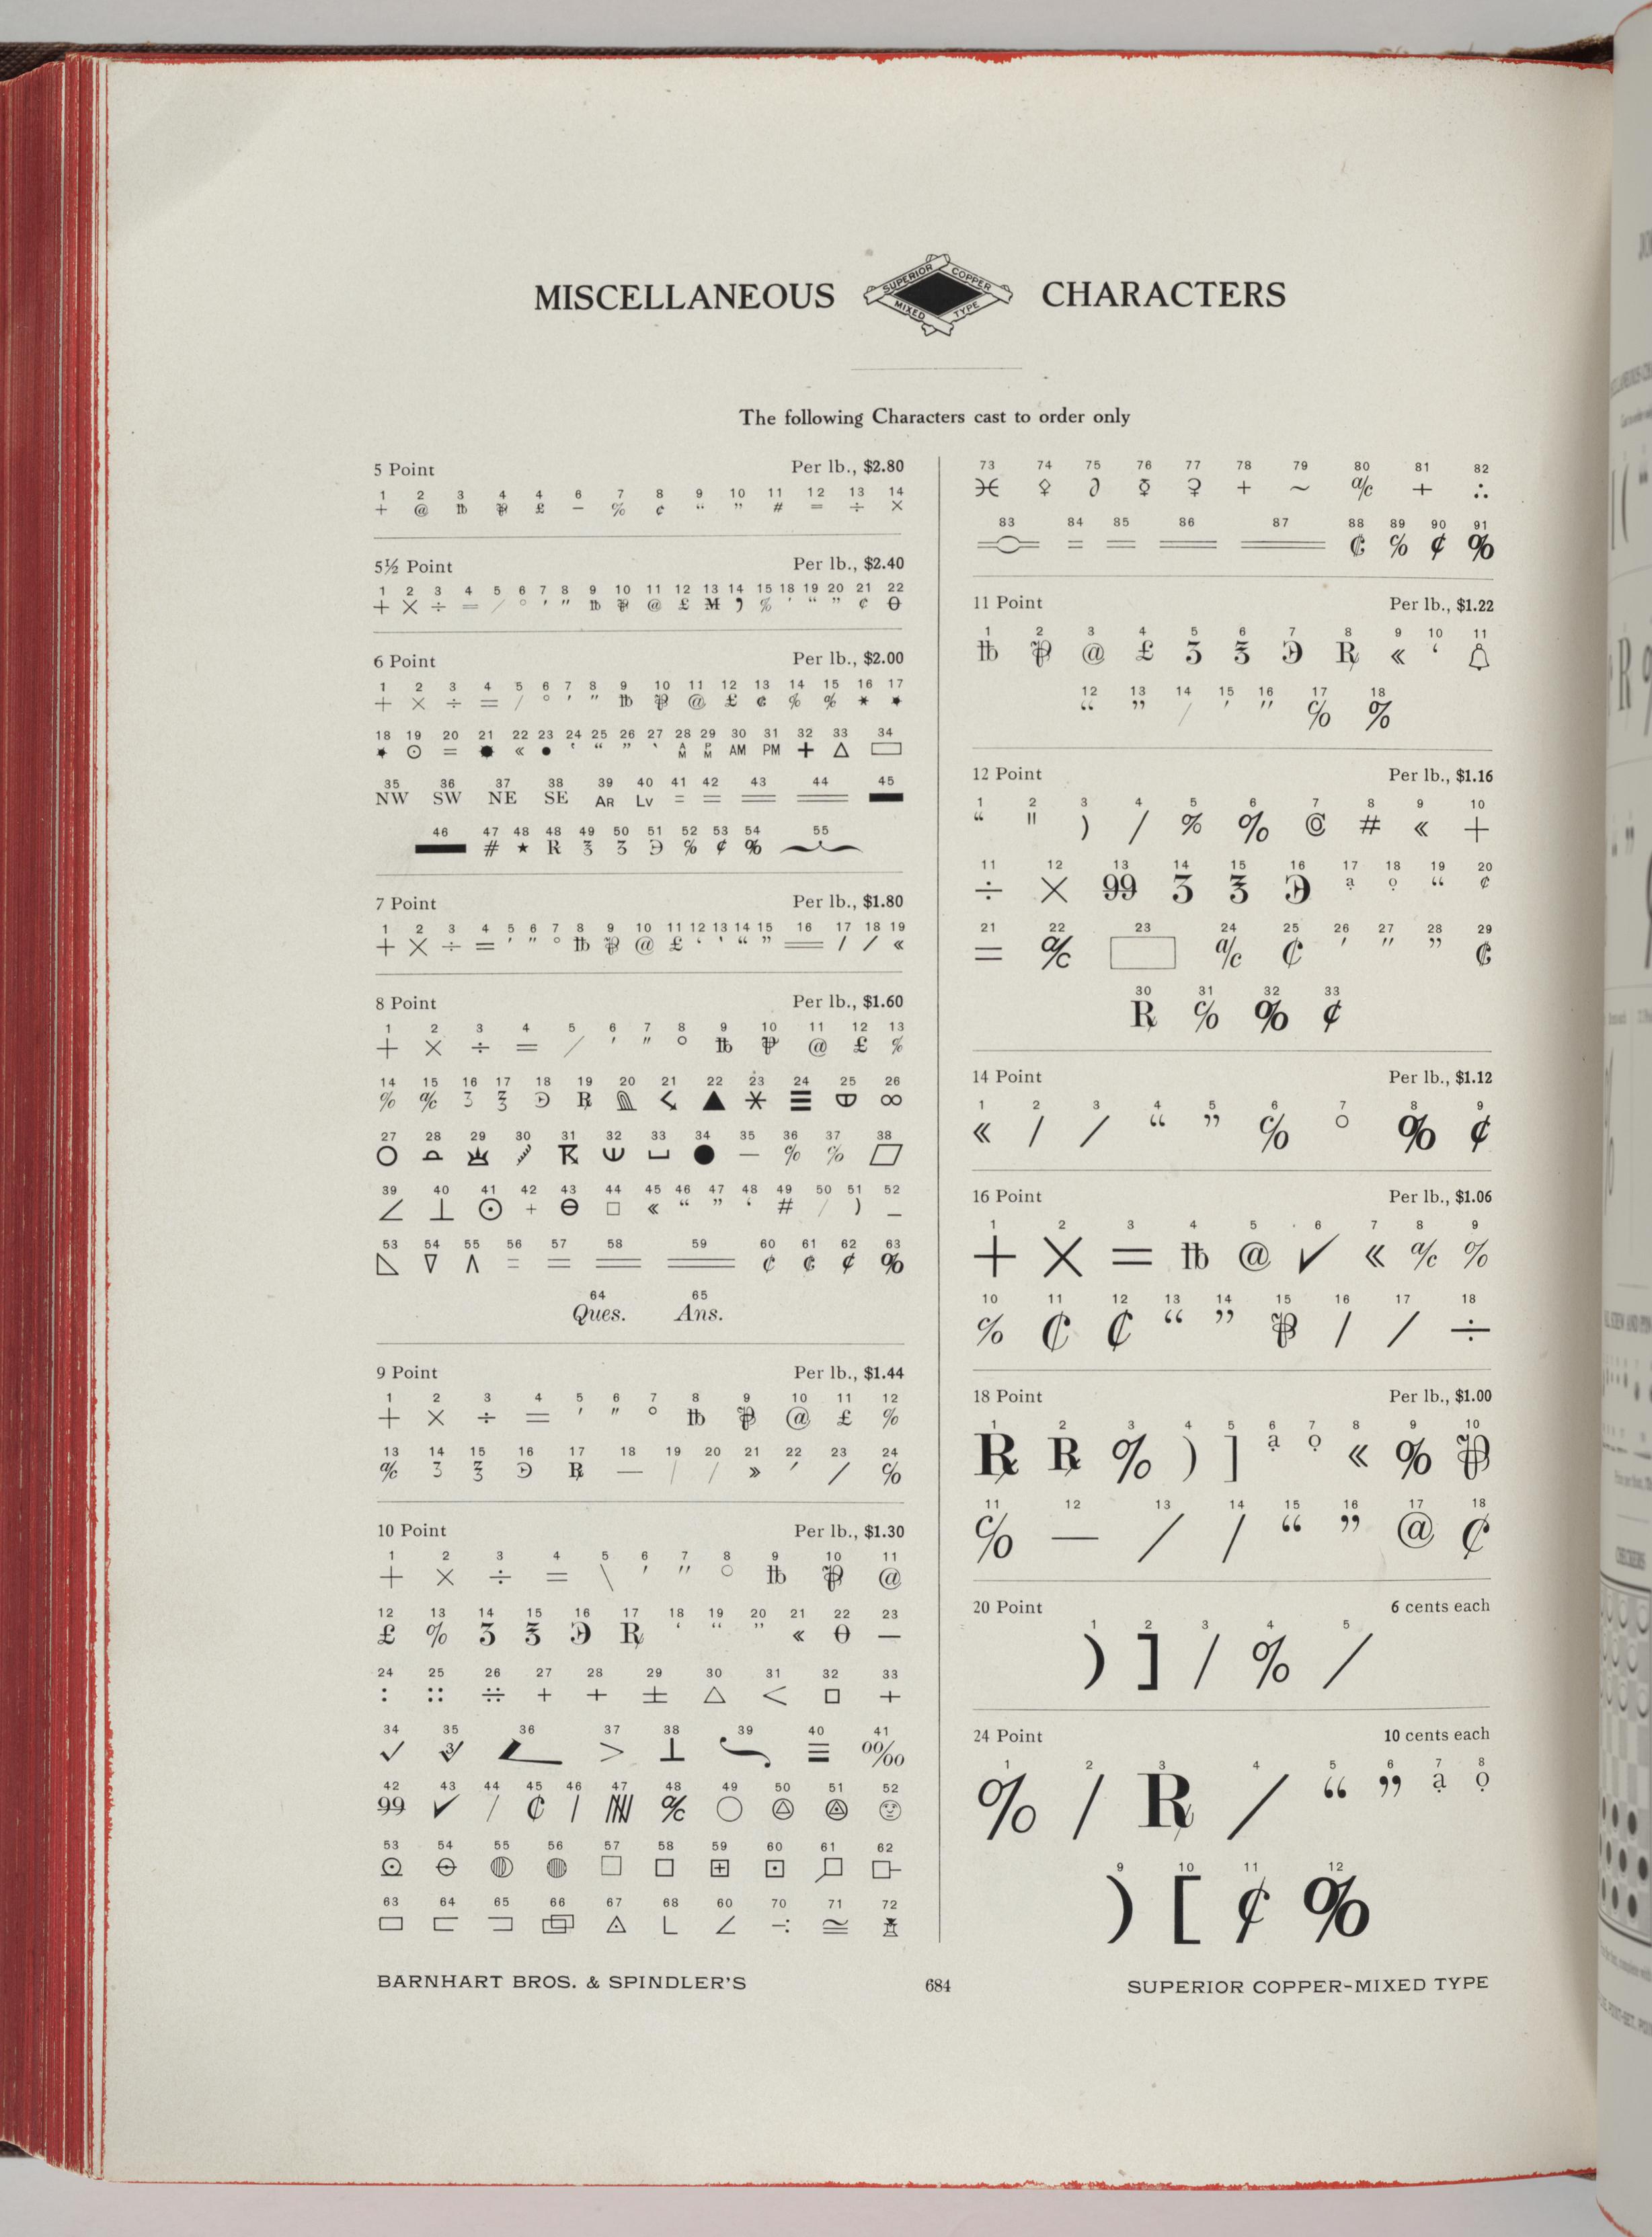 MISCELLANEOUS SUPERIOR COPPER MIXED TYPE CHARACTERS
The following Characters cast to order only
5 Point Per lb., $2.80
1 2 3 4 4 6 7 8 9 10 11 12 13 14
+ @ ℔ £ − % ¢ “ ” # = ÷ ×
5½ Point Per lb., $2.40
1 2 3 4 5 6 7 8 9 10 11 12 13 14 15 18 19 20 21 22
+ × ÷ = / ° ′ ″ ℔ @ £ M % ‘ “ ” ¢ θ
6 Point Per lb., $2.00
1 2 3 4 5 6 7 8 9 10 11 12 13 14 15 16 17
+ × ÷ = / ° ′ ″ ℔ @ £ ¢ % % * ★
18 19 20 21 22 23 24 25 26 27 28 29 30 31 32 33 34
★ ⊙ = « ● “ ” AM PM AM PM + △ ▭
35 36 37 38 39 40 41 42 43 44 45
NW SW NE SE AR LV = = = = ▬
46 47 48 48 49 50 51 52 53 54 55
▬ # ★ R ʒ ʒ % ¢ %
7 Point Per lb., $1.80
1 2 3 4 5 6 7 8 9 10 11 12 13 14 15 16 17 18 19
+ × ÷ = ′ ″ ° ℔ @ £ ‘ ’ “ ” = / / «
8 Point Per lb., $1.60
1 2 3 4 5 6 7 8 9 10 11 12 13
+ × ÷ = / ′ ″ ° ℔ @ £ %
14 15 16 17 18 19 20 21 22 23 24 25 26
% ℀ ʒ ℞ ▲ ☰ ∞
27 28 29 30 31 32 33 34 35 36 37 38
○ ● — % % ▱
39 40 41 42 43 44 45 46 47 48 49 50 51 52
∠ ⊥ ⊙ + ⊖ □ « “ ” ‘ # / ) –
53 54 55 56 57 58 59 60 61 62 63
◺ ▽ ∧ = = = = ¢ ¢ ¢ %
64 65
Ques. Ans.
9 Point Per lb., $1.44
1 2 3 4 5 6 7 8 9 10 11 12
+ × ÷ = ′ ″ ° ℔ @ £ %
13 14 15 16 17 18 19 20 21 22 23 24
℀ ʒ ℞ — / / » ′ / %
10 Point Per lb., $1.30
1 2 3 4 5 6 7 8 9 10 11
+ × ÷ = \ ′ ″ ° ℔ @
12 13 14 15 16 17 18 19 20 21 22 23
£ % ʒ ℞ ‘ “ ” « θ —
24 25 26 27 28 29 30 31 32 33
: :: + + ± △ < □ +
34 35 36 37 38 39 40 41
✓ > ⊥ ≡
42 43 44 45 46 47 48 49 50 51 52
99 ✔ / ¢ | ℀ ○
53 54 55 56 57 58 59 60 61 62
⊖ □ □ ⊞ ⊡
63 64 65 66 67 68 60 70 71 72
▭ △ L ∠ ≅
73 74 75 76 77 78 79 80 81 82
♀ ∂ ☿ ♀ + ~ ℀ + ∴
83 84 85 86 87 88 89 90 91
= = = = ¢ ℅ ¢ %
11 Point Per lb., $1.22
1 2 3 4 5 6 7 8 9 10 11
℔ @ £ ʒ ℞ « ‘
12 13 14 15 16 17 18
“ ” / ′ ″ ℅ %
12 Point Per lb., $1.16
1 2 3 4 5 6 7 8 9 10
“ " ) / % % @ # « +
11 12 13 14 15 16 17 18 19 20
÷ × 99 ʒ a o “ ¢
21 22 23 24 25 26 27 28 29
= ℀ ▭ ℀ ¢ ′ ″ ” ¢
30 31 32 33
℞ ℅ % ¢
14 Point Per lb., $1.12
1 2 3 4 5 6 7 8 9
« / / “ ” ℅ ° % ¢
16 Point Per lb., $1.06
1 2 3 4 5 6 7 8 9
+ × = ℔ @ ✓ « ℀ %
10 11 12 13 14 15 16 17 18
℅ ¢ ¢ “ ” / / ÷
18 Point Per lb., $1.00
1 2 3 4 5 6 7 8 9 10
℞ ℞ % ) ] a o « %
11 12 13 14 15 16 17 18
℅ — / / “ ” @ ¢
20 Point 6 cents each
1 2 3 4 5
) ] / % /
24 Point 10 cents each
1 2 3 4 5 6 7 8
% / ℞ / “ ” a o
9 10 11 12
) [ ¢ %
BARNHART BROS. & SPINDLER'S 684 SUPERIOR COPPER-MIXED TYPE